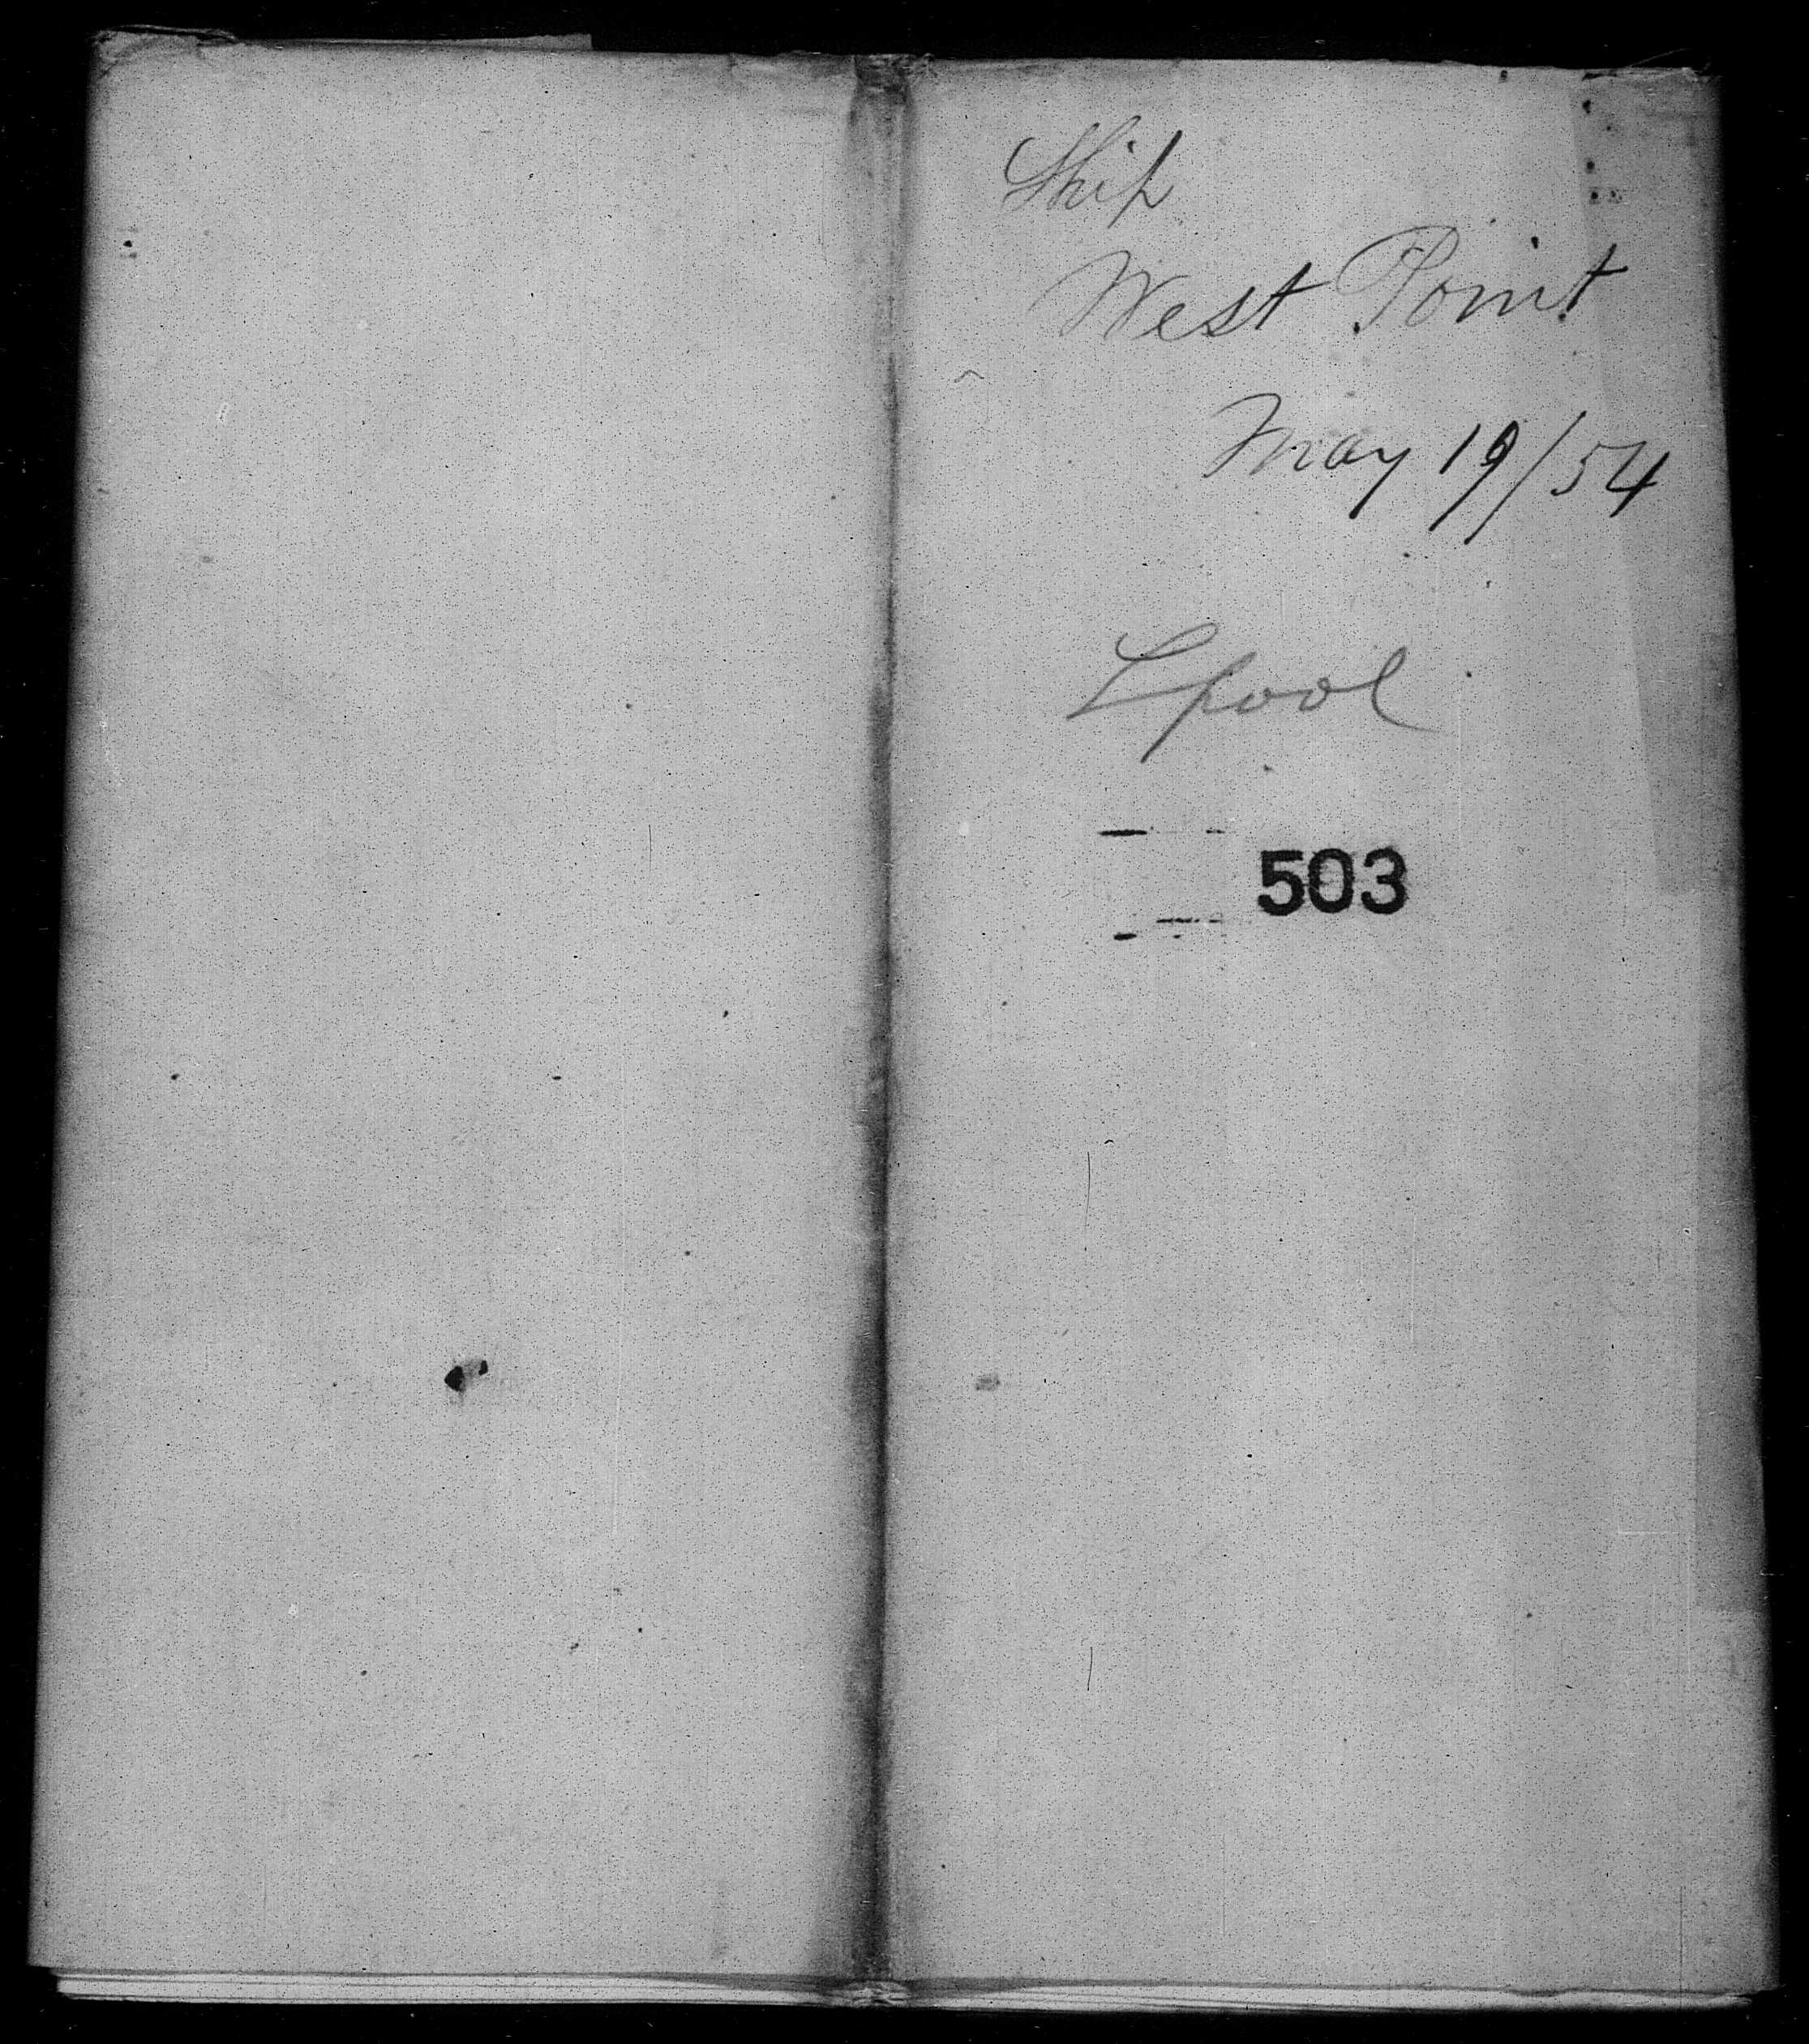 Ship
West Point
May 19/54
Lpool
503